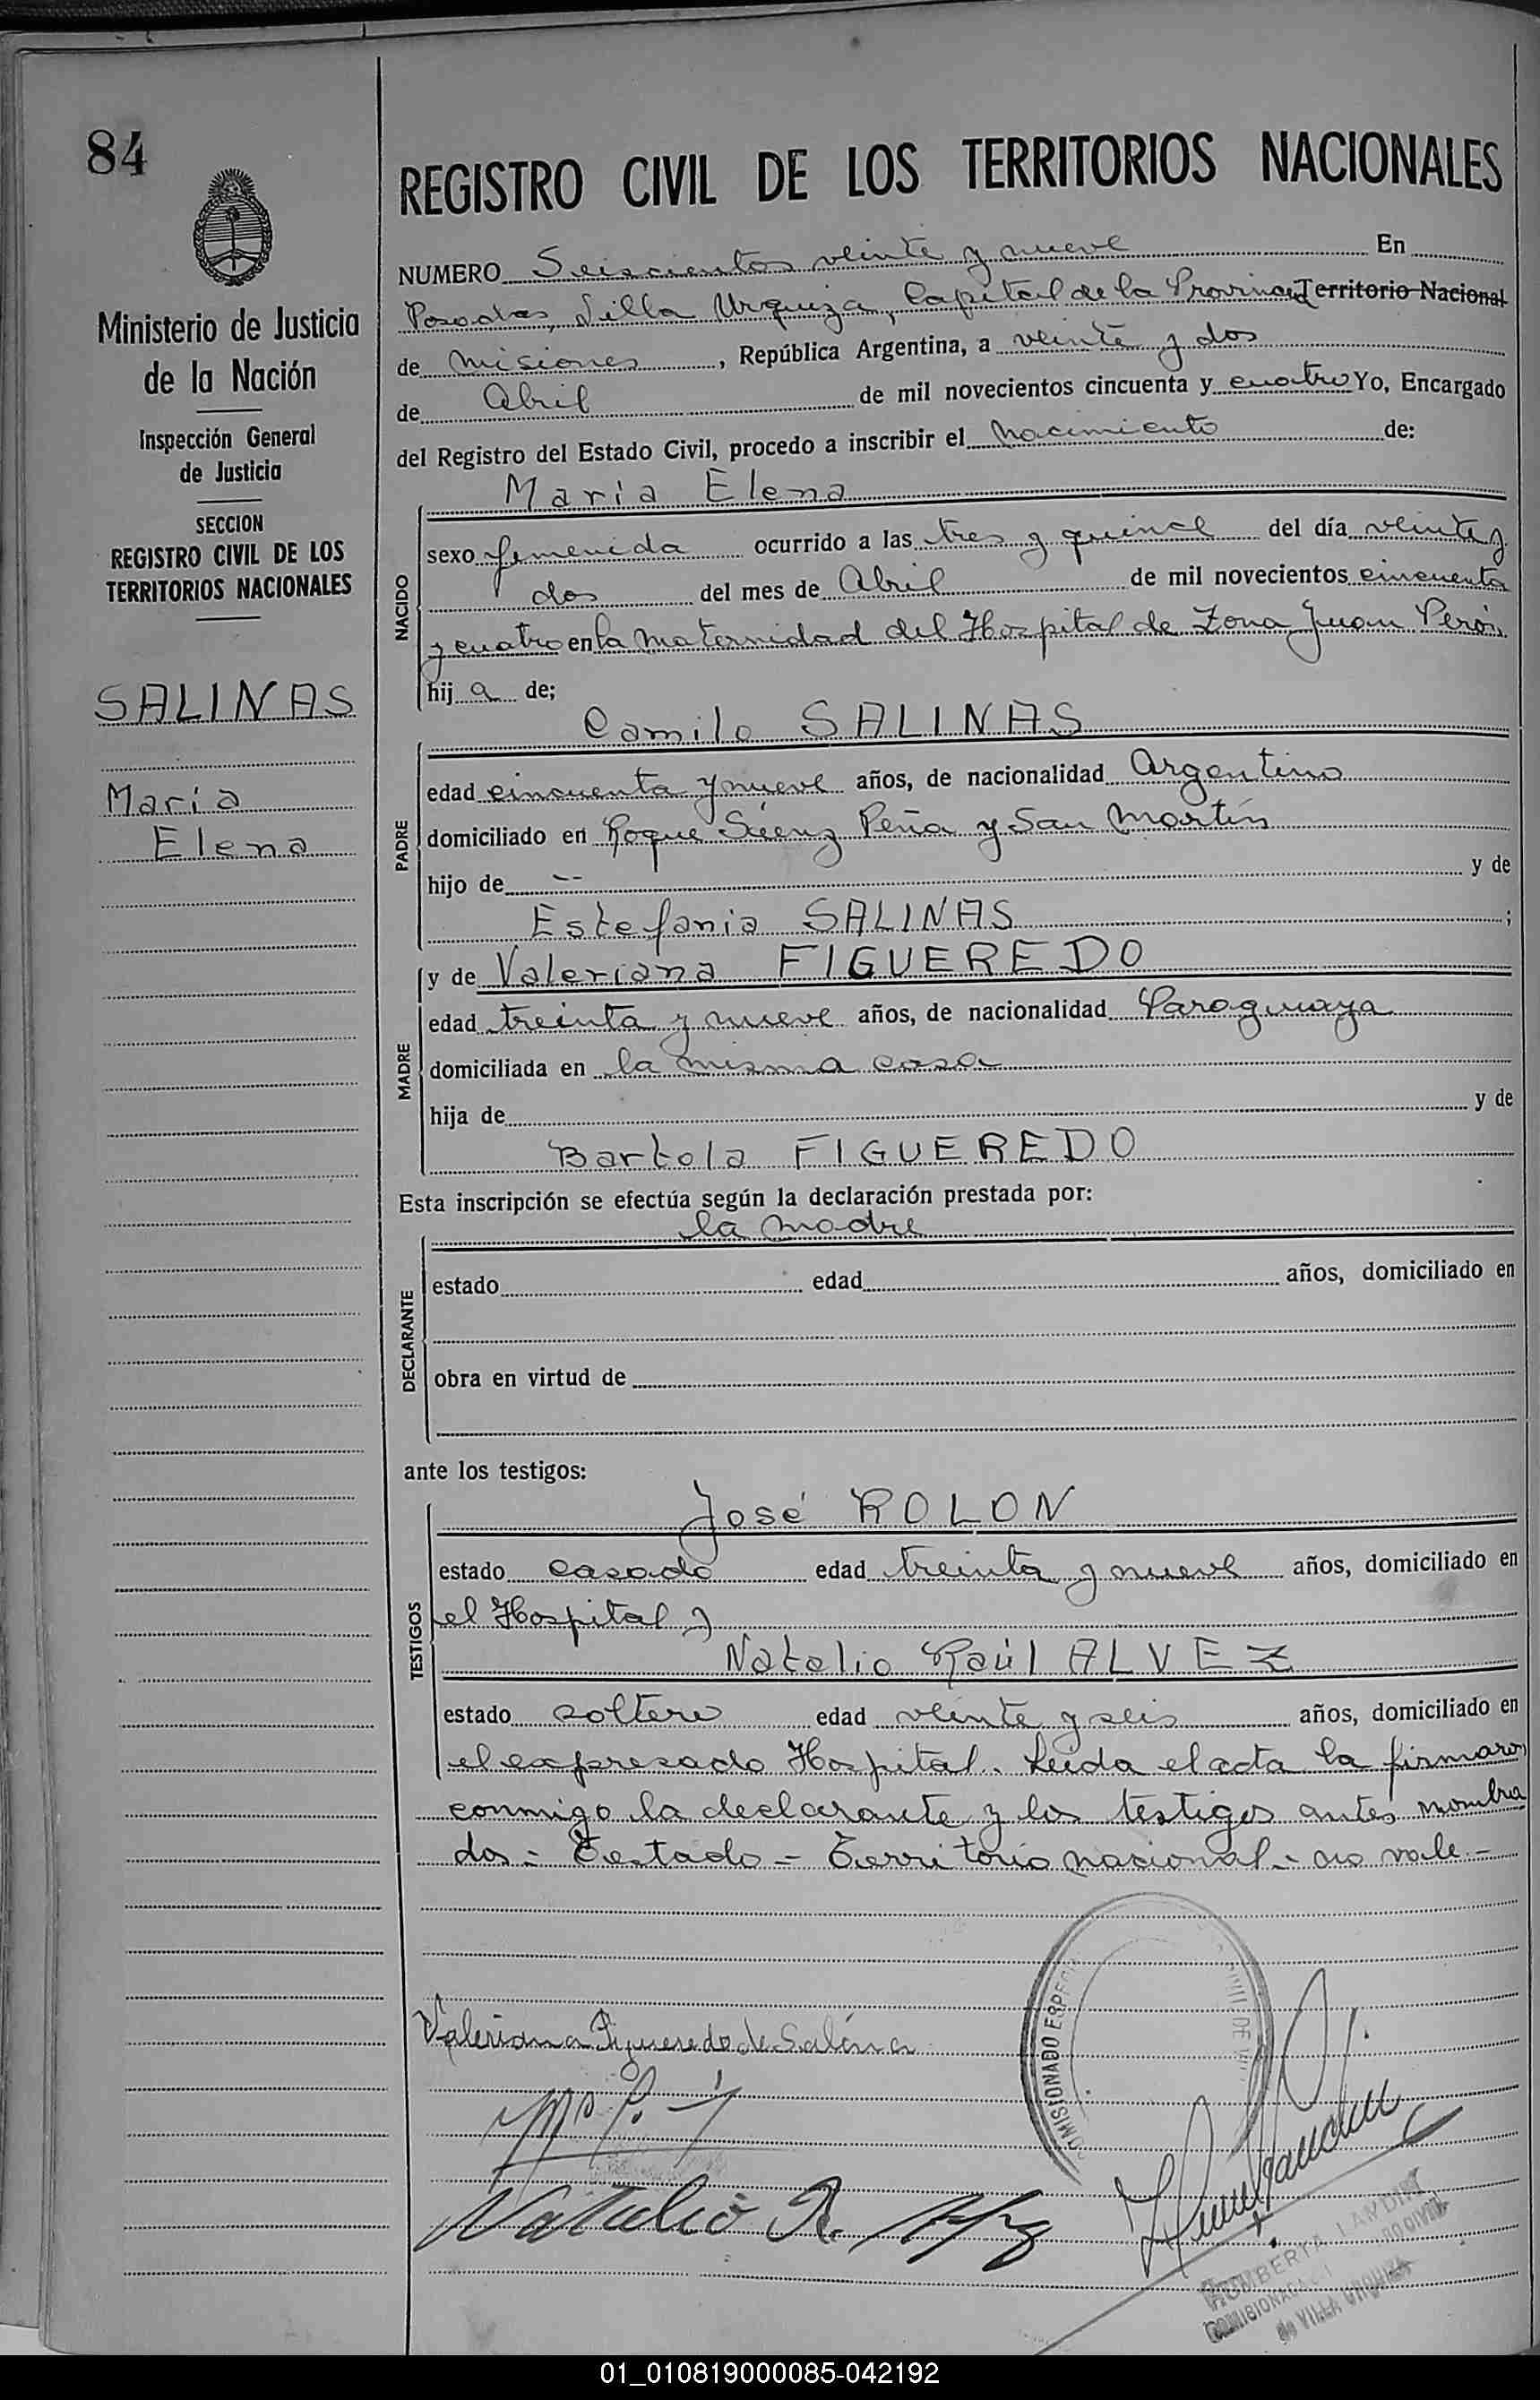 84
REGISTRO CIVIL DE LOS TERRITORIOS NACIONALES
Ministerio de Justicia
de la Nación
Inspección General
de Justicia
SECCION
REGISTRO CIVIL DE LOS
TERRITORIOS NACIONALES
SALINAS
Maria
Elena
NUMERO Seiscientos veinte y nueve En
Posadas, Villa Urquiza, Capital de la Provincia Territorio Nacional
de Misiones, República Argentina, a veinte y dos
de Abril de mil novecientos cincuenta y cuatro Yo, Encargado
del Registro del Estado Civil, procedo a inscribir el Nacimiento de:
Maria Elena
NACIDO
sexo femenida ocurrido a las tres y quince del día veinte y
dos del mes de Abril de mil novecientos cincuenta
y cuatro en la Maternidad del Hospital de Zona Juan Perón,
hij a de;
Camilo SALINAS
PADRE
edad cincuenta y nueve años, de nacionalidad Argentino
domiciliado en Roque Sáenz Peña y San Martín
hijo de -- y de
Estefania SALINAS ;
y de Valeriana FIGUEREDO
MADRE
edad treinta y nueve años, de nacionalidad Paraguaya
domiciliada en la misma casa
hija de y de
Bartola FIGUEREDO
Esta inscripción se efectúa según la declaración prestada por:
la madre
DECLARANTE
estado edad años, domiciliado en
obra en virtud de
ante los testigos:
José ROLON
TESTIGOS
estado casado edad treinta y nueve años, domiciliado en
el Hospital y
Natalio Raúl ALVEZ
estado soltero edad veinte y seis años, domiciliado en
el expresado Hospital. Leída el acta la firmaron
conmigo la declarante y los testigos antes nombra
dos - Testado - Territorio nacional - no vale -
Valeriana Figueredo de Salina
Natalio R.
COMISIONADO ESPECI
CIVIL DE
HUMBERTA LANDIN
COMISIONADA
de VILLA URQUIZA
01_010819000085-042192